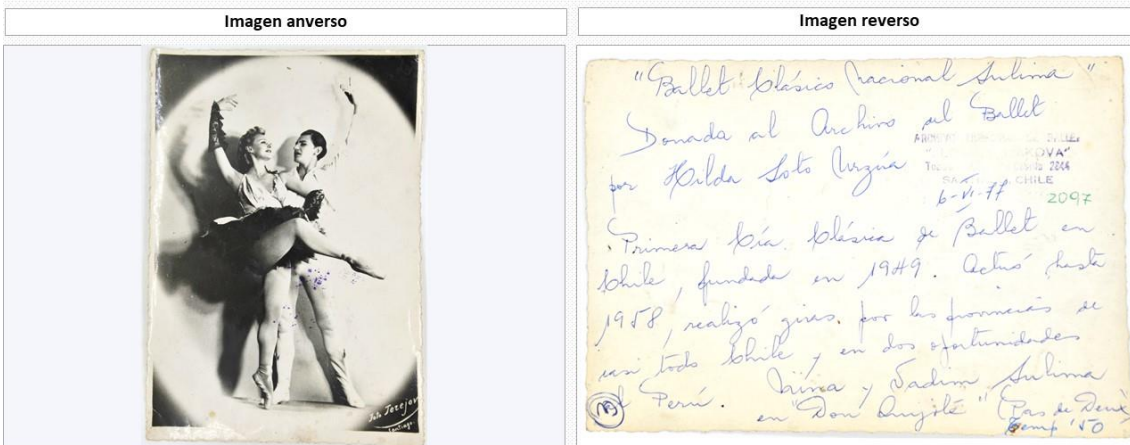 Imagen anverso
Imagen reverso
Foto Terejov
Santiago.
"Ballet Clásico Nacional Sulima"
Donada al Archivo del Ballet
por Hilda Soto Urzúa
2006
CHILE
6-VI-77
2097
Primera Cía. Clásica de Ballet en
Chile, fundada en 1949. Actuó hasta
1958, realizó giras por las provincias de
casi todo Chile y en dos oportunidades
al Perú. Nina y Vadim Sulima
en "Don Quijote" (Pas de Deux
Temp '50